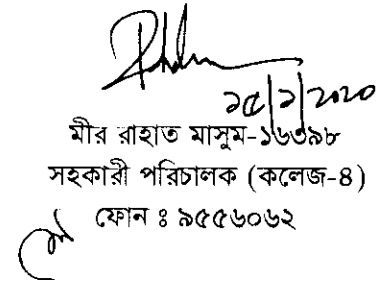 ১৫/১/২০২০
মীর রাহাত মাসুম-১৬৩৯৮
সহকারী পরিচালক (কলেজ-৪)
ফোন ঃ ৯৫৫৬০৬২